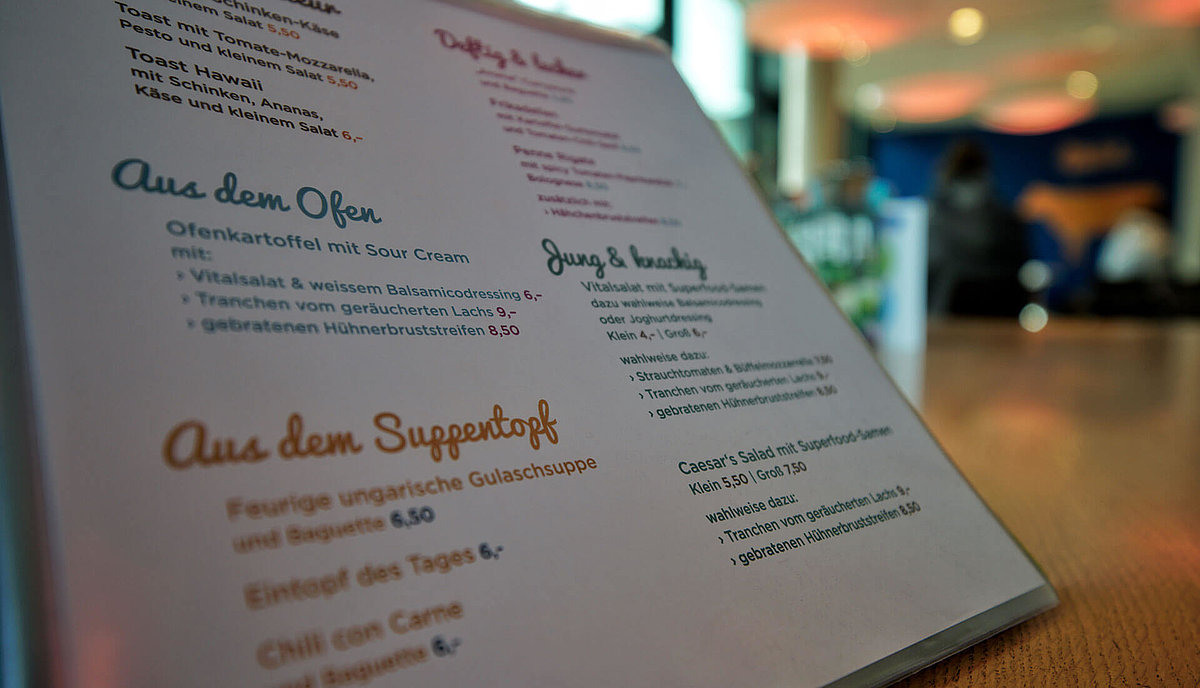 Schinken-Käse
kleinem Salat 5,50
Toast mit Tomate-Mozzarella,
Pesto und kleinem Salat 5,50
Toast Hawaii
mit Schinken, Ananas,
Käse und kleinem Salat 6,-
Aus dem Ofen
Ofenkartoffel mit Sour Cream
mit:
› Vitalsalat & weissem Balsamicodressing 6,-
› Tranchen vom geräucherten Lachs 9,-
› gebratenen Hühnerbruststreifen 8,50
Aus dem Suppentopf
Feurige ungarische Gulaschsuppe
und Baguette 6,50
Eintopf des Tages 6,-
Chili con Carne
und Baguette 6,-
Deftig & lecker
Frikadellen
Penne Rigate
Bolognese
zusätzlich mit:
› Hähnchenbruststreifen
Jung & knackig
Vitalsalat mit Superfood-Samen
dazu wahlweise Balsamicodressing
oder Joghurtdressing
Klein 4,- | Groß 6,-
wahlweise dazu:
› Strauchtomaten & Büffelmozzarella 7,50
› Tranchen vom geräucherten Lachs 9,-
› gebratenen Hühnerbruststreifen 8,50
Caesar's Salad mit Superfood-Samen
Klein 5,50 | Groß 7,50
wahlweise dazu:
› Tranchen vom geräucherten Lachs 9,-
› gebratenen Hühnerbruststreifen 8,50